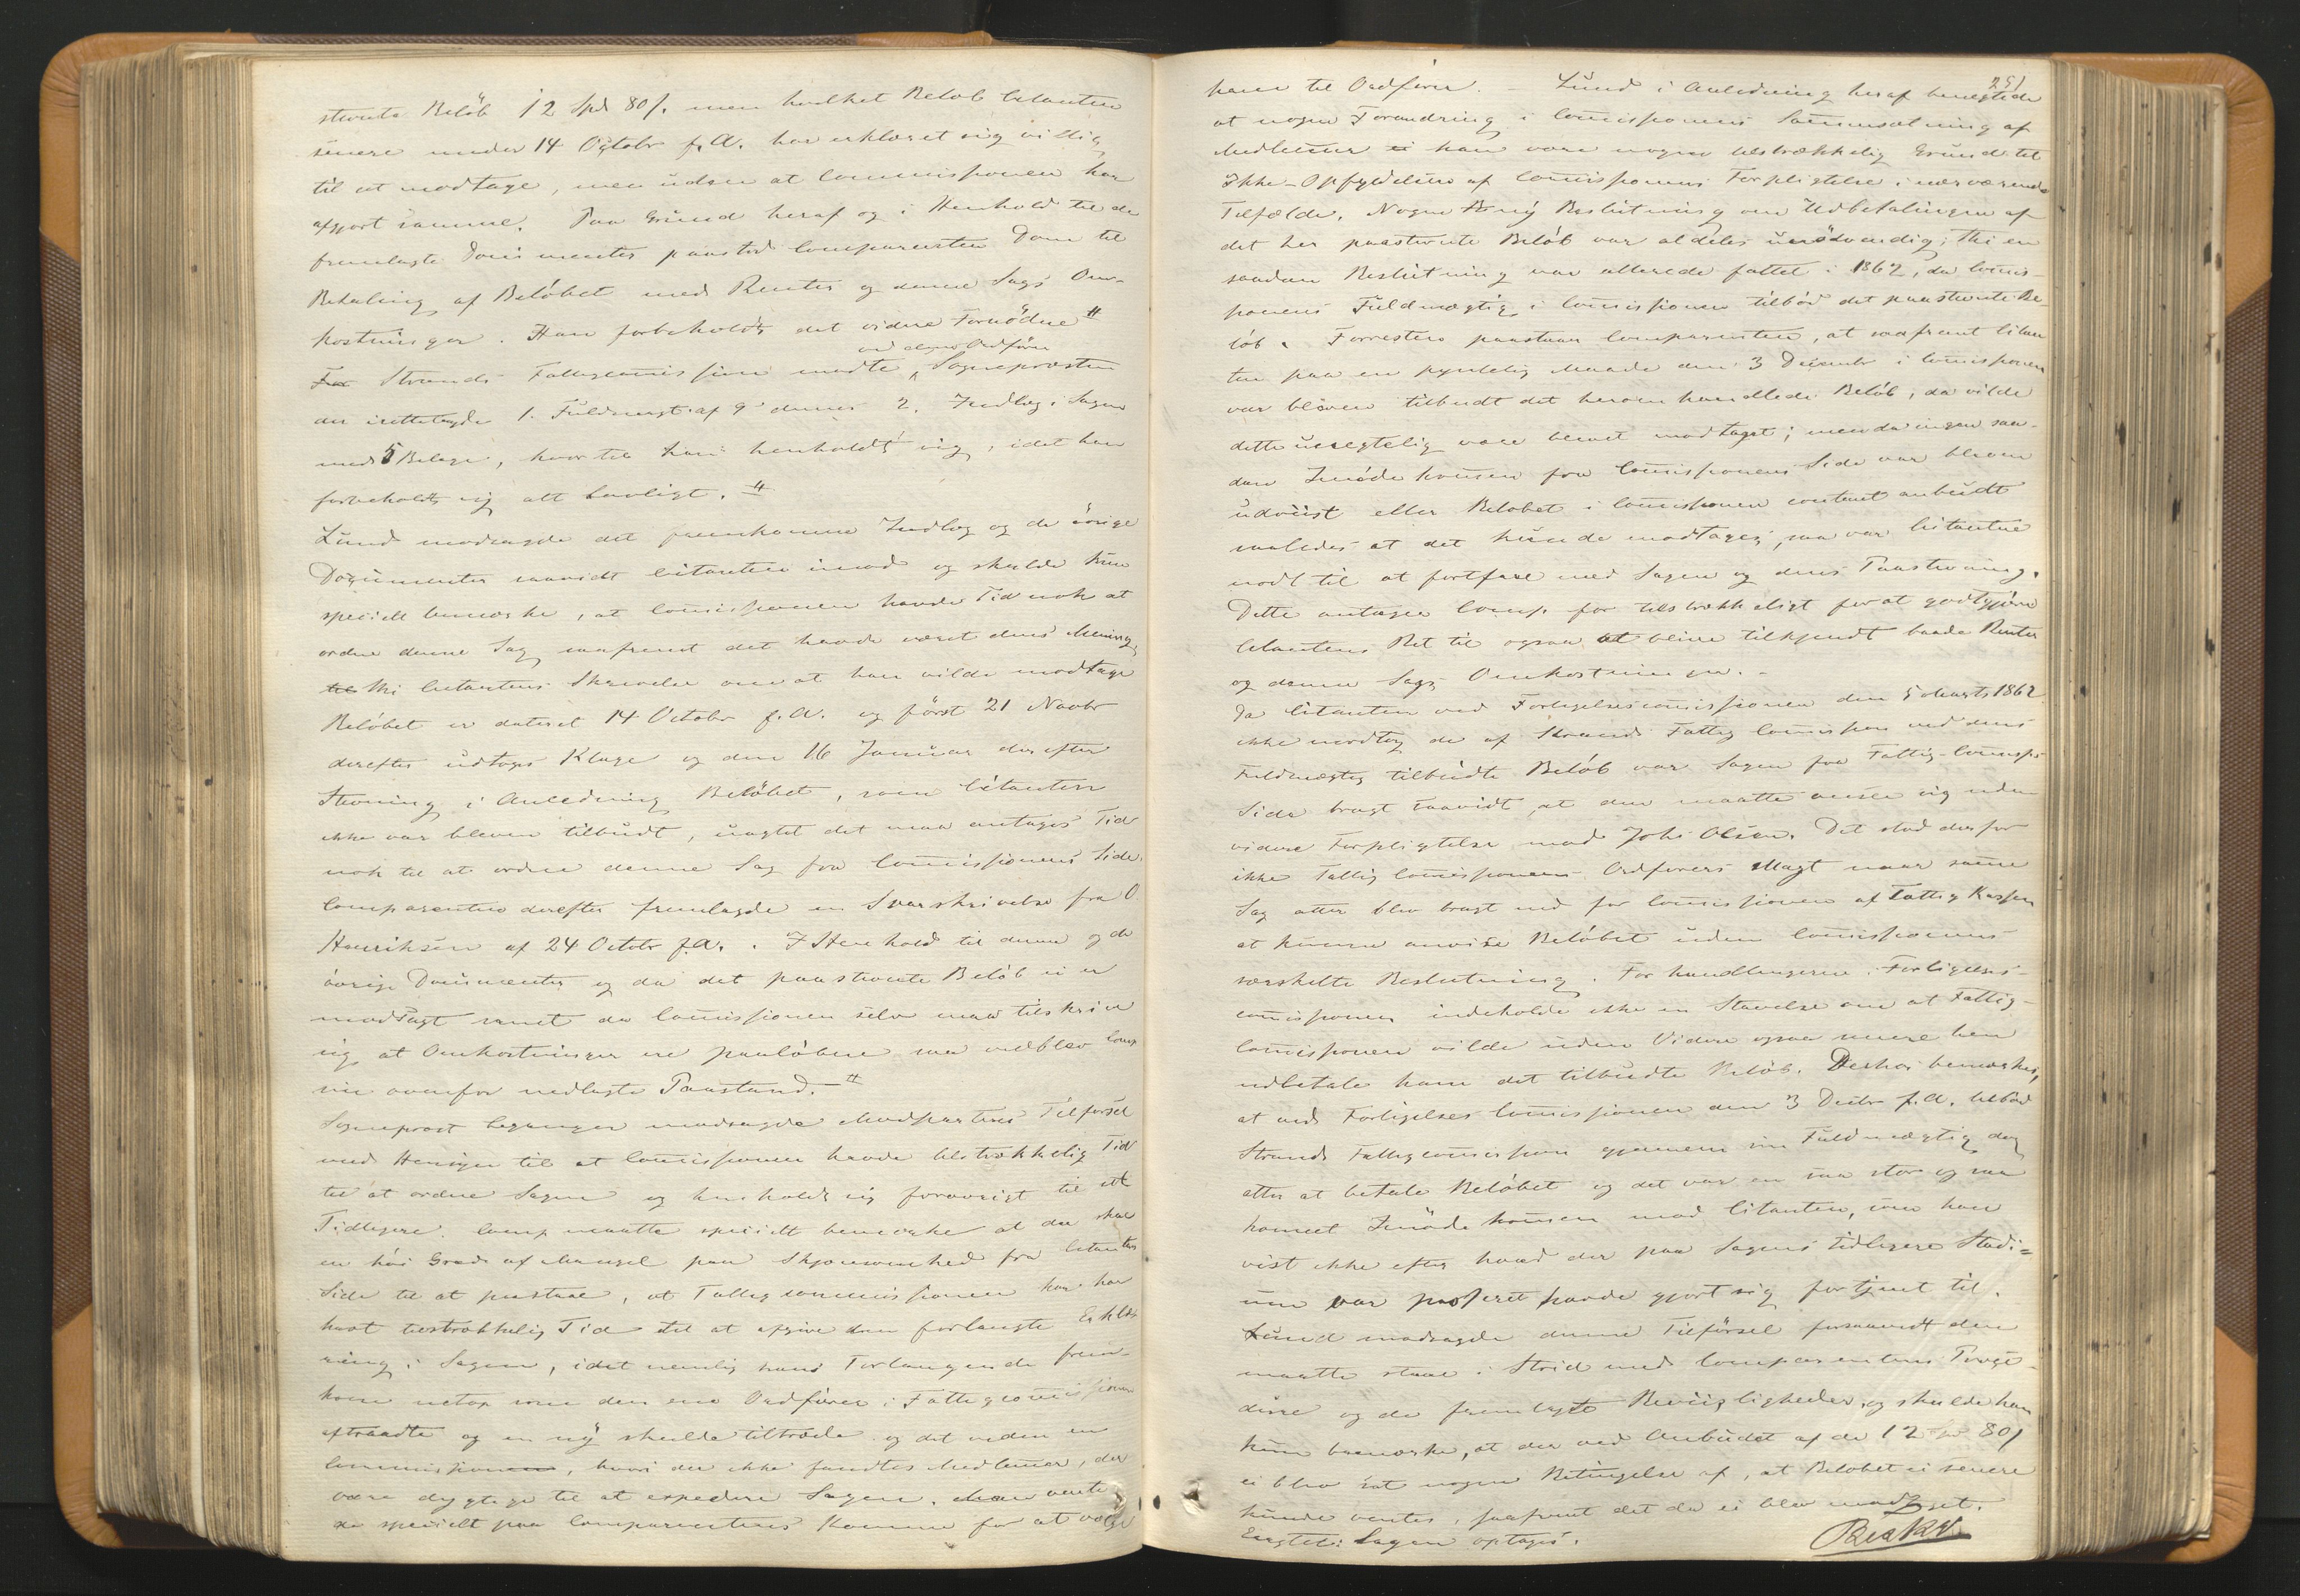 stevnte Beløb 12 Spd 80 s. men hvilket Beløb Citanten
senere under 14 Octobr f. A. har erklæret sig villig
til at modtage, men uden at Commissionen har
afgjort samme. Paa Grund heraf og i Henhold til de
fremlagte Documenter paastod Comparenten Dom til
Betaling af Beløbet med Renter og denne Sags Om-
kostninger. Han forbeholdt det videre Fornødne #
ved dens Ordfører
For Strands Fattigcommission mødte Sognepræsten
der irettelagde 1. Fuldmagt af 9 dennes 2. Indlæg i Sagen
med 5 Bilage, hvortil han henholdt sig, idet han
forbeholdt sig alt lovligt. #
Lund modsagde det fremkomne Indlæg og de øvrige
Documenter saavidt Citanten imod og skulde kun
specielt bemærke, at Commissionen havde Tid nok at
ordne denne Sag saafremt det havde været dens Mening
til thi Citantens Skrivelse om at han vilde modtage
Beløbet er dateret 14 Octobr f. A. og først 21 Novbr
derefter udtoges Klage og den 16 Januar derefter
Stevning i Anledning Beløbet, som Citanten
ikke var bleven tilbudt, uagtet det maa antages Tid
nok til at ordne denne Sag fra Commissionens Side.
Comparenten derefter fremlagde en Svarskrivelse fra O
Henriksen af 24 Octobr f. A. . I Henhold til denne og de
øvrige Documenter og da det paastevnte Beløb ei er
modsagt samt da Commissionen selv maa tilskrive
sig at Omkostninger ere paaløbne saa vedblev Comp
sin ovenfor nedlagte Paastand. #
Sogneprest modsagde Modpartens Tilførsel
med Hensyn til at Commissionen havde tilstrækkelig Tid
til at ordne Sagen og henholdt sig forøvrigt til det
Tidligere. Comp maatte specielt bemærke at der skal
en høi Grad af Mangel paa Skjønsomhed fra Citantens
Side til at paastaae, at Fattigcommissionen har
havt tilstrækkelig Tid til at afgive den forlangte Erklæ-
ring i Sagen, idet nemlig hans Forlangende frem-
kom netop som den ene Ordfører i Fattigcommissionen
aftraadte og en ny skulde tiltræde og det inden en
Commission, hvori der ikke fandtes Medlemer, der
vare dygtige til at expedere Sagen. Man vente
de specielt paa Comparentens Komme for at vælge
251
ham til Ordfører. – Lund i Anledning heraf benegtede
at nogen Forandring i Commissionens Sammensætning af
Medlemer ei kan være nogen tilstrækkelig Grund til
Ikke-Opfyldelsen af Commissionens Forpligtelse i nærværende
Tilfælde. Nogen ny Beslutning om Udbetalingen af
det her paastevnte Beløb var aldeles unødvendig; thi en
saadan Beslutning var allerede fattet i 1862, da Commis-
sionens Fuldmægtig i Commissionen tilbød det paastevnte Be-
løb. Forresten paastaar Comparenten, at saafremt Citan
ten paa en pyntelig Maade den 3 Decembr i Commissionen
var bleven tilbudt det herom handlede Beløb, da vilde
dette unegtelig være blevet modtaget; men da ingen saa-
dan Imødekomen fra Commissionens Side var bleven
udviist eller Beløbet i Commissionen contant anbudt
saaledes at det kunde modtages, saa var Citantene
nødt til at fortsætte med Sagen og dens Paastevning.
Dette antager Comp for tilstrækkeligt for at godtgjøre
Citantens Ret til ogsaa at blive tilkjendt baade Renter
og denne Sags Omkostninger. –
Da Citanten ved Forligelsescommissionen den 5 Marts 1862
ikke modtog de af Strands Fattig Commission ved dens
Fuldmægtig tilbudte Beløb var Sagen fra Fattig-Commiss.
Side bragt saavidt, at den maatte ansee sig uden
videre Forpligtelse mod Johs Olsen. Det stod derfor
ikke i Fattig Commissionens Ordførers Magt naar samme
Sag atter blev bragt ind for Commissionen af Fattig Kassen
at kunne anvise Beløbet uden Commissionens
særskilte Beslutning. Forhandlingerne i Forligelses-
commissionen indeholde ikke en Stavelse om at Fattig-
commissionen vilde uden Videre ogsaa senere hen
udbetale ham det tilbudte Beløb. Deshos bemærkes,
at ved Forligelses Commissionen den 3 Decbr f. A. tilbød
Strands Fattigcommission gjennem sin Fuldmægtig dog
atter at betale Beløbet og det var en saa stor og saa
human Imødekomen mod Citanten, som han
vist ikke efter hvad der paa Sagens tidligere Stadi=
um var passeret havde gjort sig fortjent til.
Lund modsagde denne Tilførsel forsaavidt den
maatte staae i Strid med Comparentens Proce-
dure og de fremlagte Beviisligheder, og skulde han
kun bemærke, at der ved Anbudet af de 12 Spd 80 s
ei blev sat nogen Betingelse af, at Beløbet ei senere
kunde ventes, saafremt det da ei blev modtaget.
Eragtet: Sagen optages.